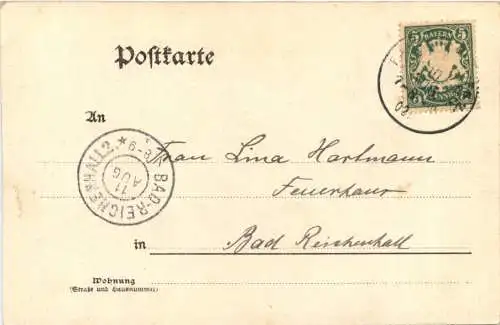 Postkarte
5 BAYERN 5
An
Frau Lina Hartmann
Feuerhaus
in Bad Reichenhall
BAD-REICHENHALL 2. * 8-9
11
AUG
Wohnung
(Straße und Hausnummer)